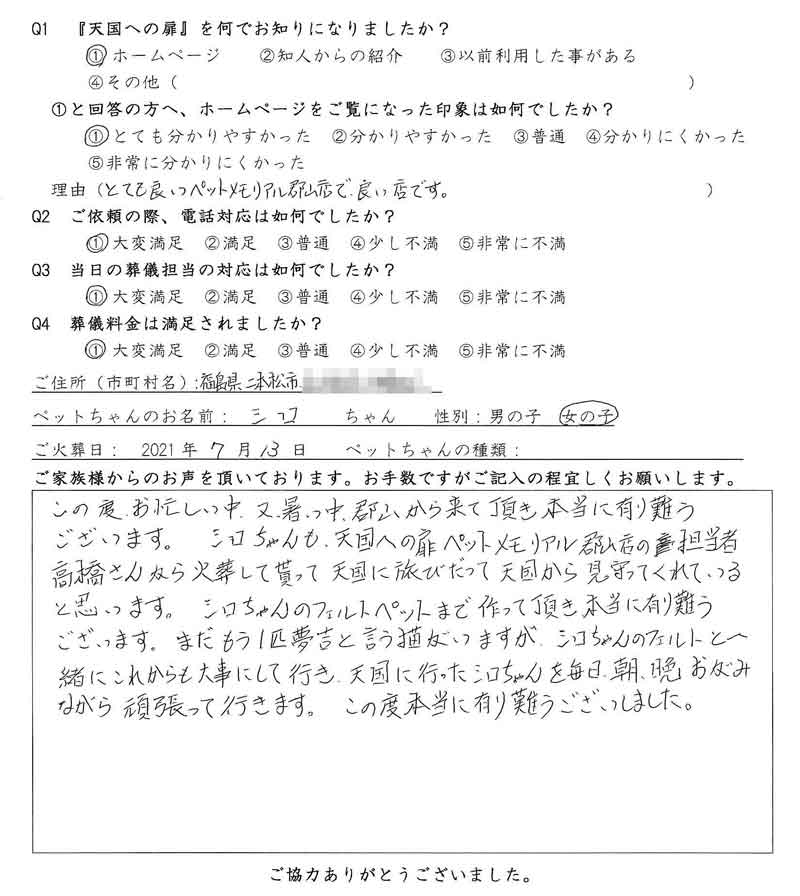 Q1 『天国への扉』を何でお知りになりましたか？
①ホームページ ②知人からの紹介 ③以前利用した事がある
④その他（ ）
①と回答の方へ、ホームページをご覧になった印象は如何でしたか？
①とても分かりやすかった ②分かりやすかった ③普通 ④分かりにくかった
⑤非常に分かりにくかった
理由（とても良いペットメモリアル郡山店で、良い店です。 ）
Q2 ご依頼の際、電話対応は如何でしたか？
①大変満足 ②満足 ③普通 ④少し不満 ⑤非常に不満
Q3 当日の葬儀担当の対応は如何でしたか？
①大変満足 ②満足 ③普通 ④少し不満 ⑤非常に不満
Q4 葬儀料金は満足されましたか？
①大変満足 ②満足 ③普通 ④少し不満 ⑤非常に不満
ご住所（市町村名）:福島県二本松市
ペットちゃんのお名前： シロ ちゃん 性別：男の子 女の子
ご火葬日： 2021年 7月 13日 ペットちゃんの種類：
ご家族様からのお声を頂いております。お手数ですがご記入の程宜しくお願いします。
この度、お忙しい中、又、暑い中、郡山から来て頂き本当に有り難う
ございます。 シロちゃんも、天国への扉ペットメモリアル郡山店の担当者
高橋さんなら火葬して貰って天国に旅びだって天国から見守ってくれている
と思います。 シロちゃんのフェルトペットまで作って頂き本当に有り難う
ございます。まだもう1匹夢吉と言う猫がいますが、シロちゃんのフェルトと一
緒にこれからも大事にして行き、天国に行ったシロちゃんを毎日、朝、晩おがみ
ながら頑張って行きます。 この度本当に有り難うございました。
ご協力ありがとうございました。